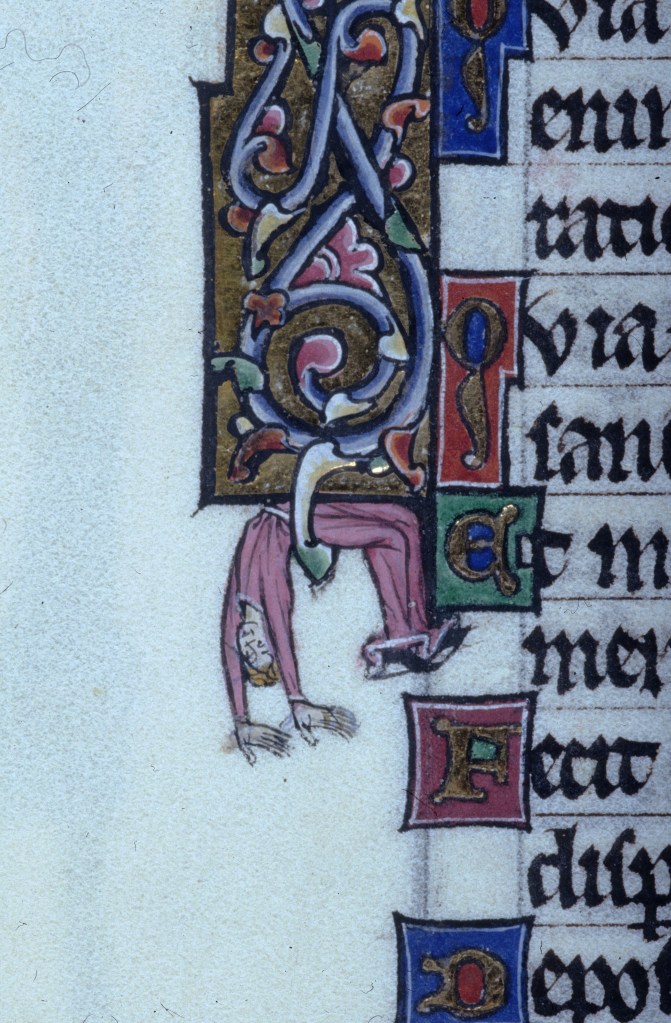 Quia
enim
ratio
Quia
san
Et m
men
Fecit
disp
Depo